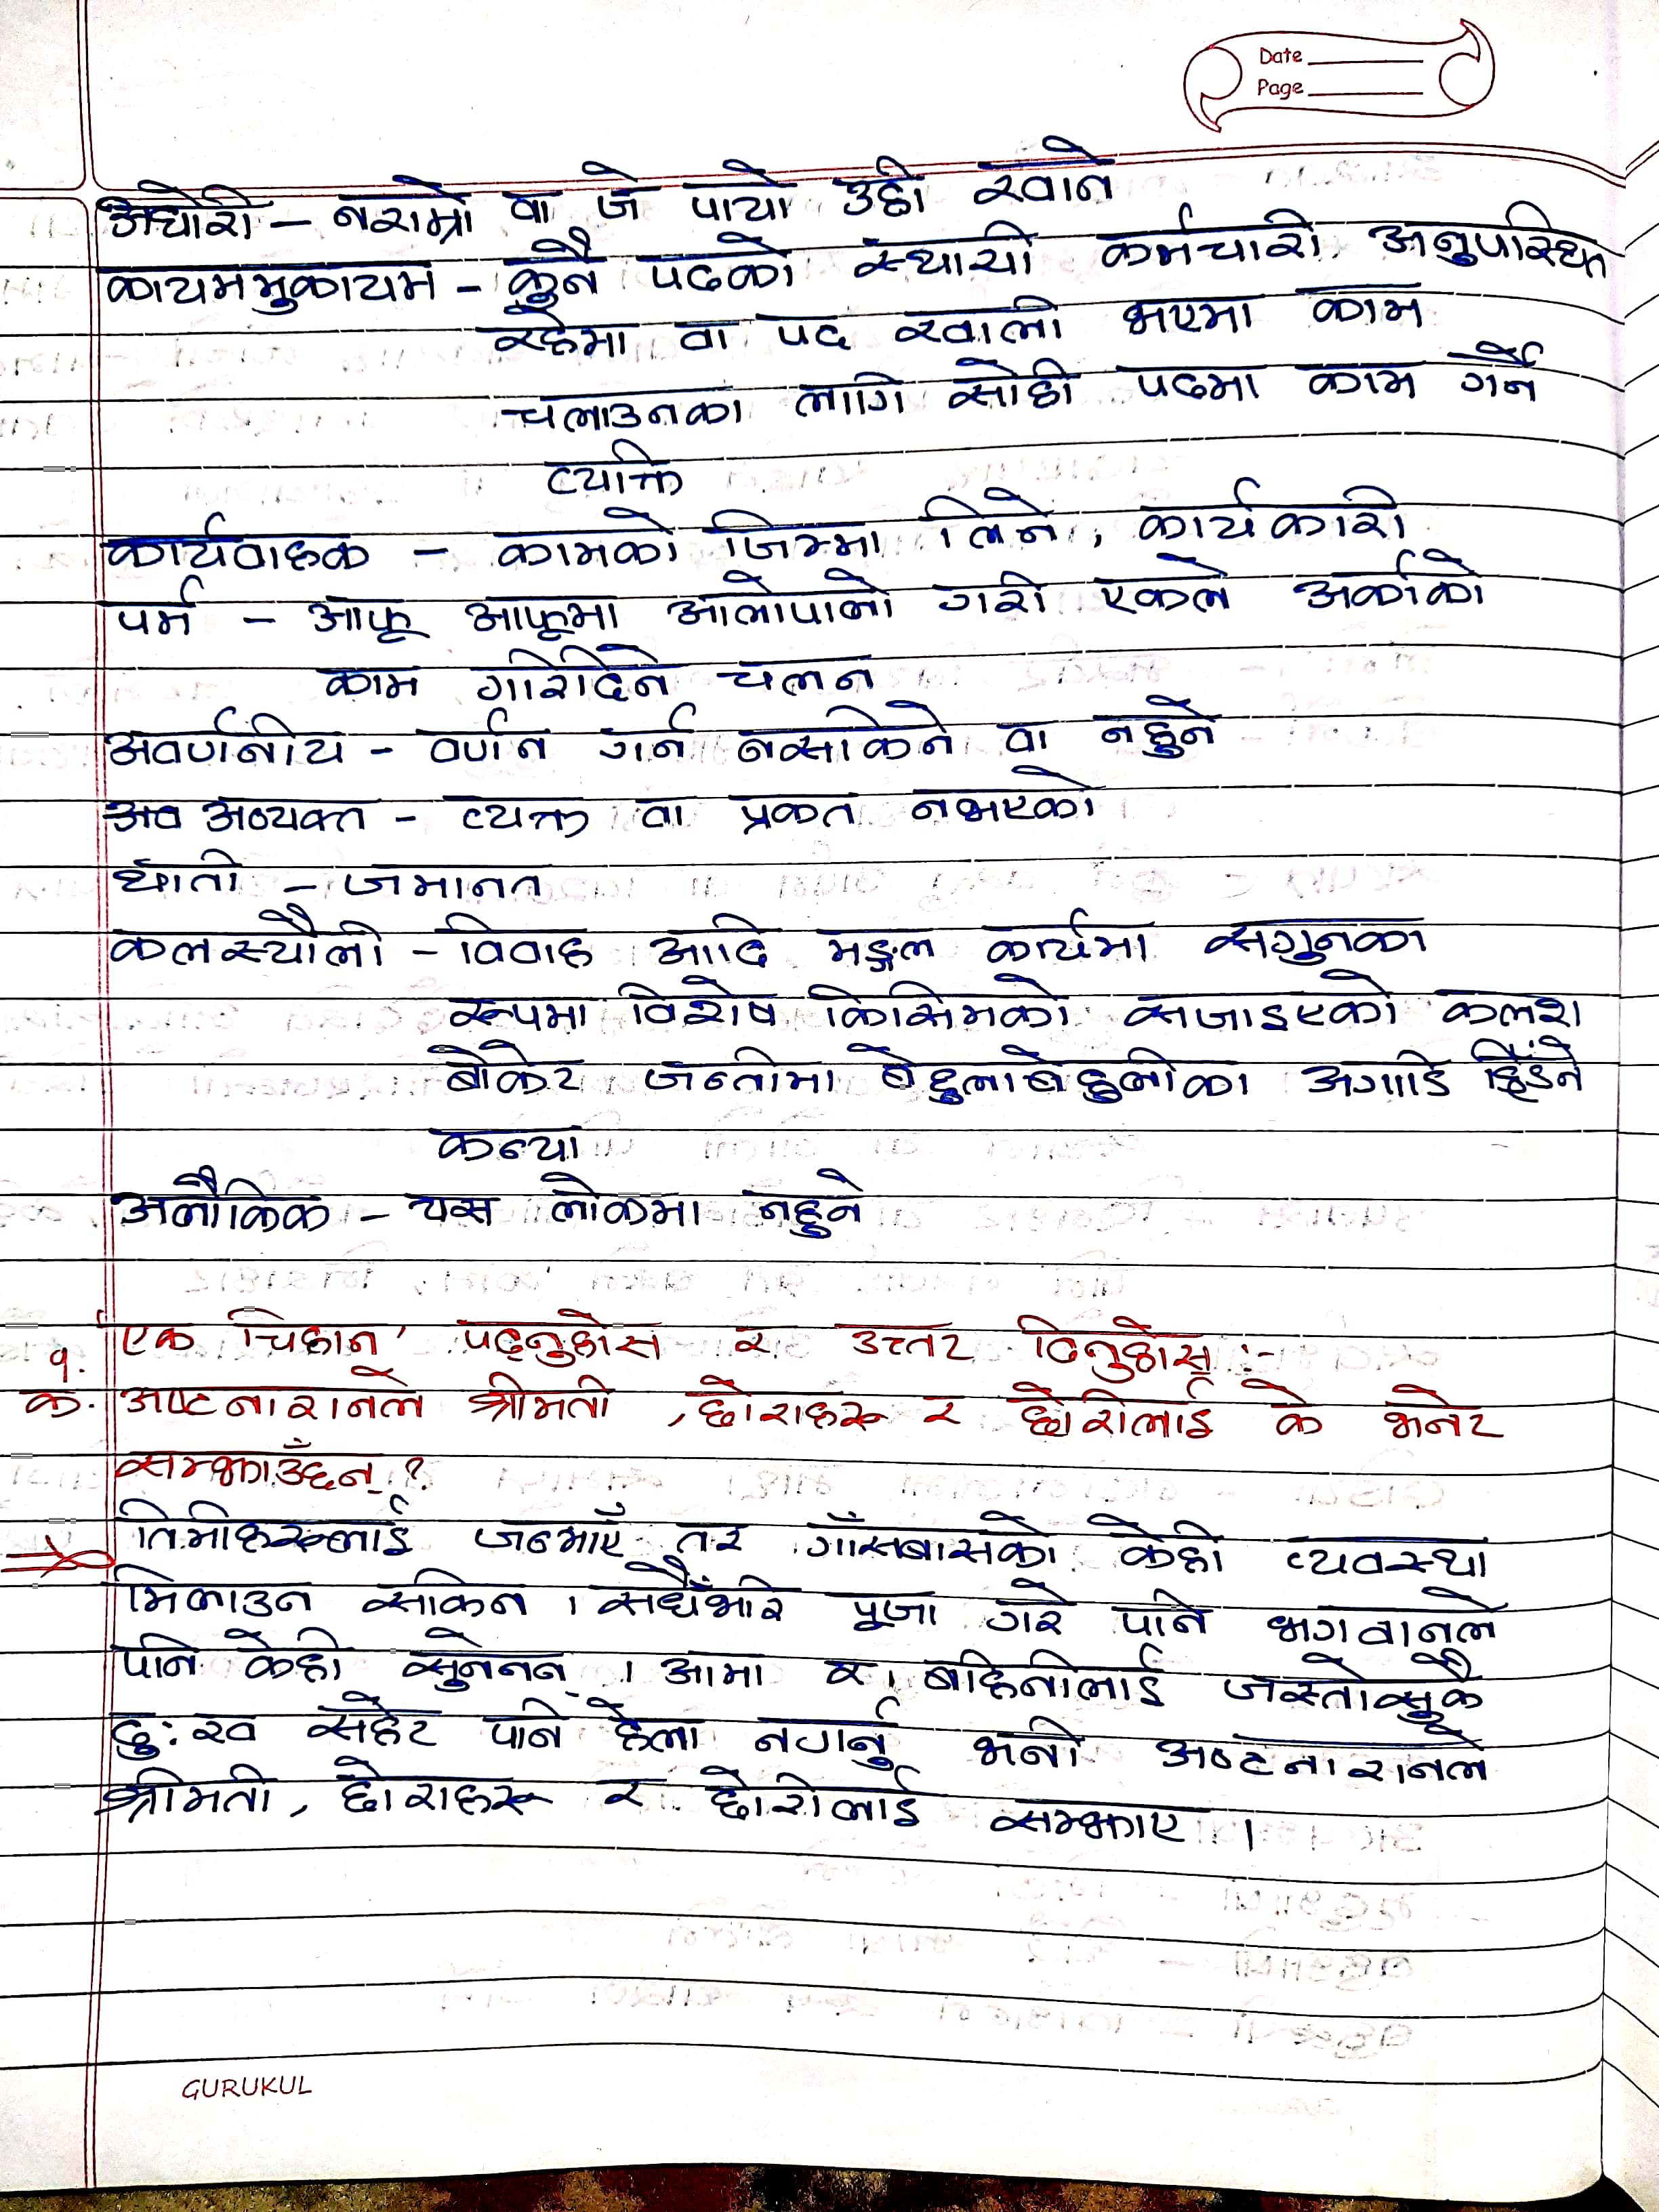 Date
Page
अघोरी – नराम्रो वा जे पायो उही खाने
कायममुकायम – कुनै पदको स्थायी कर्मचारी अनुपस्थित
रहेमा वा पद खाली भएमा काम
चलाउनका लागि सोही पदमा काम गर्ने
व्यक्ति
कार्यवाहक – कामको जिम्मा लिने, कार्यकारी
पर्म – आफू आफूमा आलोपालो गरी एकले अर्काको
काम गरिदिने चलन
अवर्णनीय – वर्णन गर्न नसकिने वा नहुने
अव अव्यक्त – व्यक्त वा प्रकत नभएको
धाती – जमानत
कलस्यौली – विवाह आदि मङ्गल कार्यमा सगुनका
रूपमा विशेष किसिमको सजाइएको कलश
बोकेर जन्तीमा बेहुलाबेहुलीका अगाडि हिँडने
कन्या
अलौकिक – यस लोकमा नहुने
१. 'एक चिहान' पढ्नुहोस र उत्तर दिनुहोस् :-
क. अष्टनारानले श्रीमती, छोराहरू र छोरीलाई के भनेर
सम्झाउँछन् ?
⇒ तिमीहरूलाई जन्माएँ तर गाँसबासको केही व्यवस्था
मिलाउन सकिन । सधैँभरि पूजा गरे पनि भगवानले
पनि केही सुनेनन् । आमा र बहिनीलाई जस्तोसुकै
दुःख सहेर पनि हेला नगर्नु भनी अष्टनारानले
श्रीमती, छोराहरू र छोरीलाई सम्झाए ।
GURUKUL